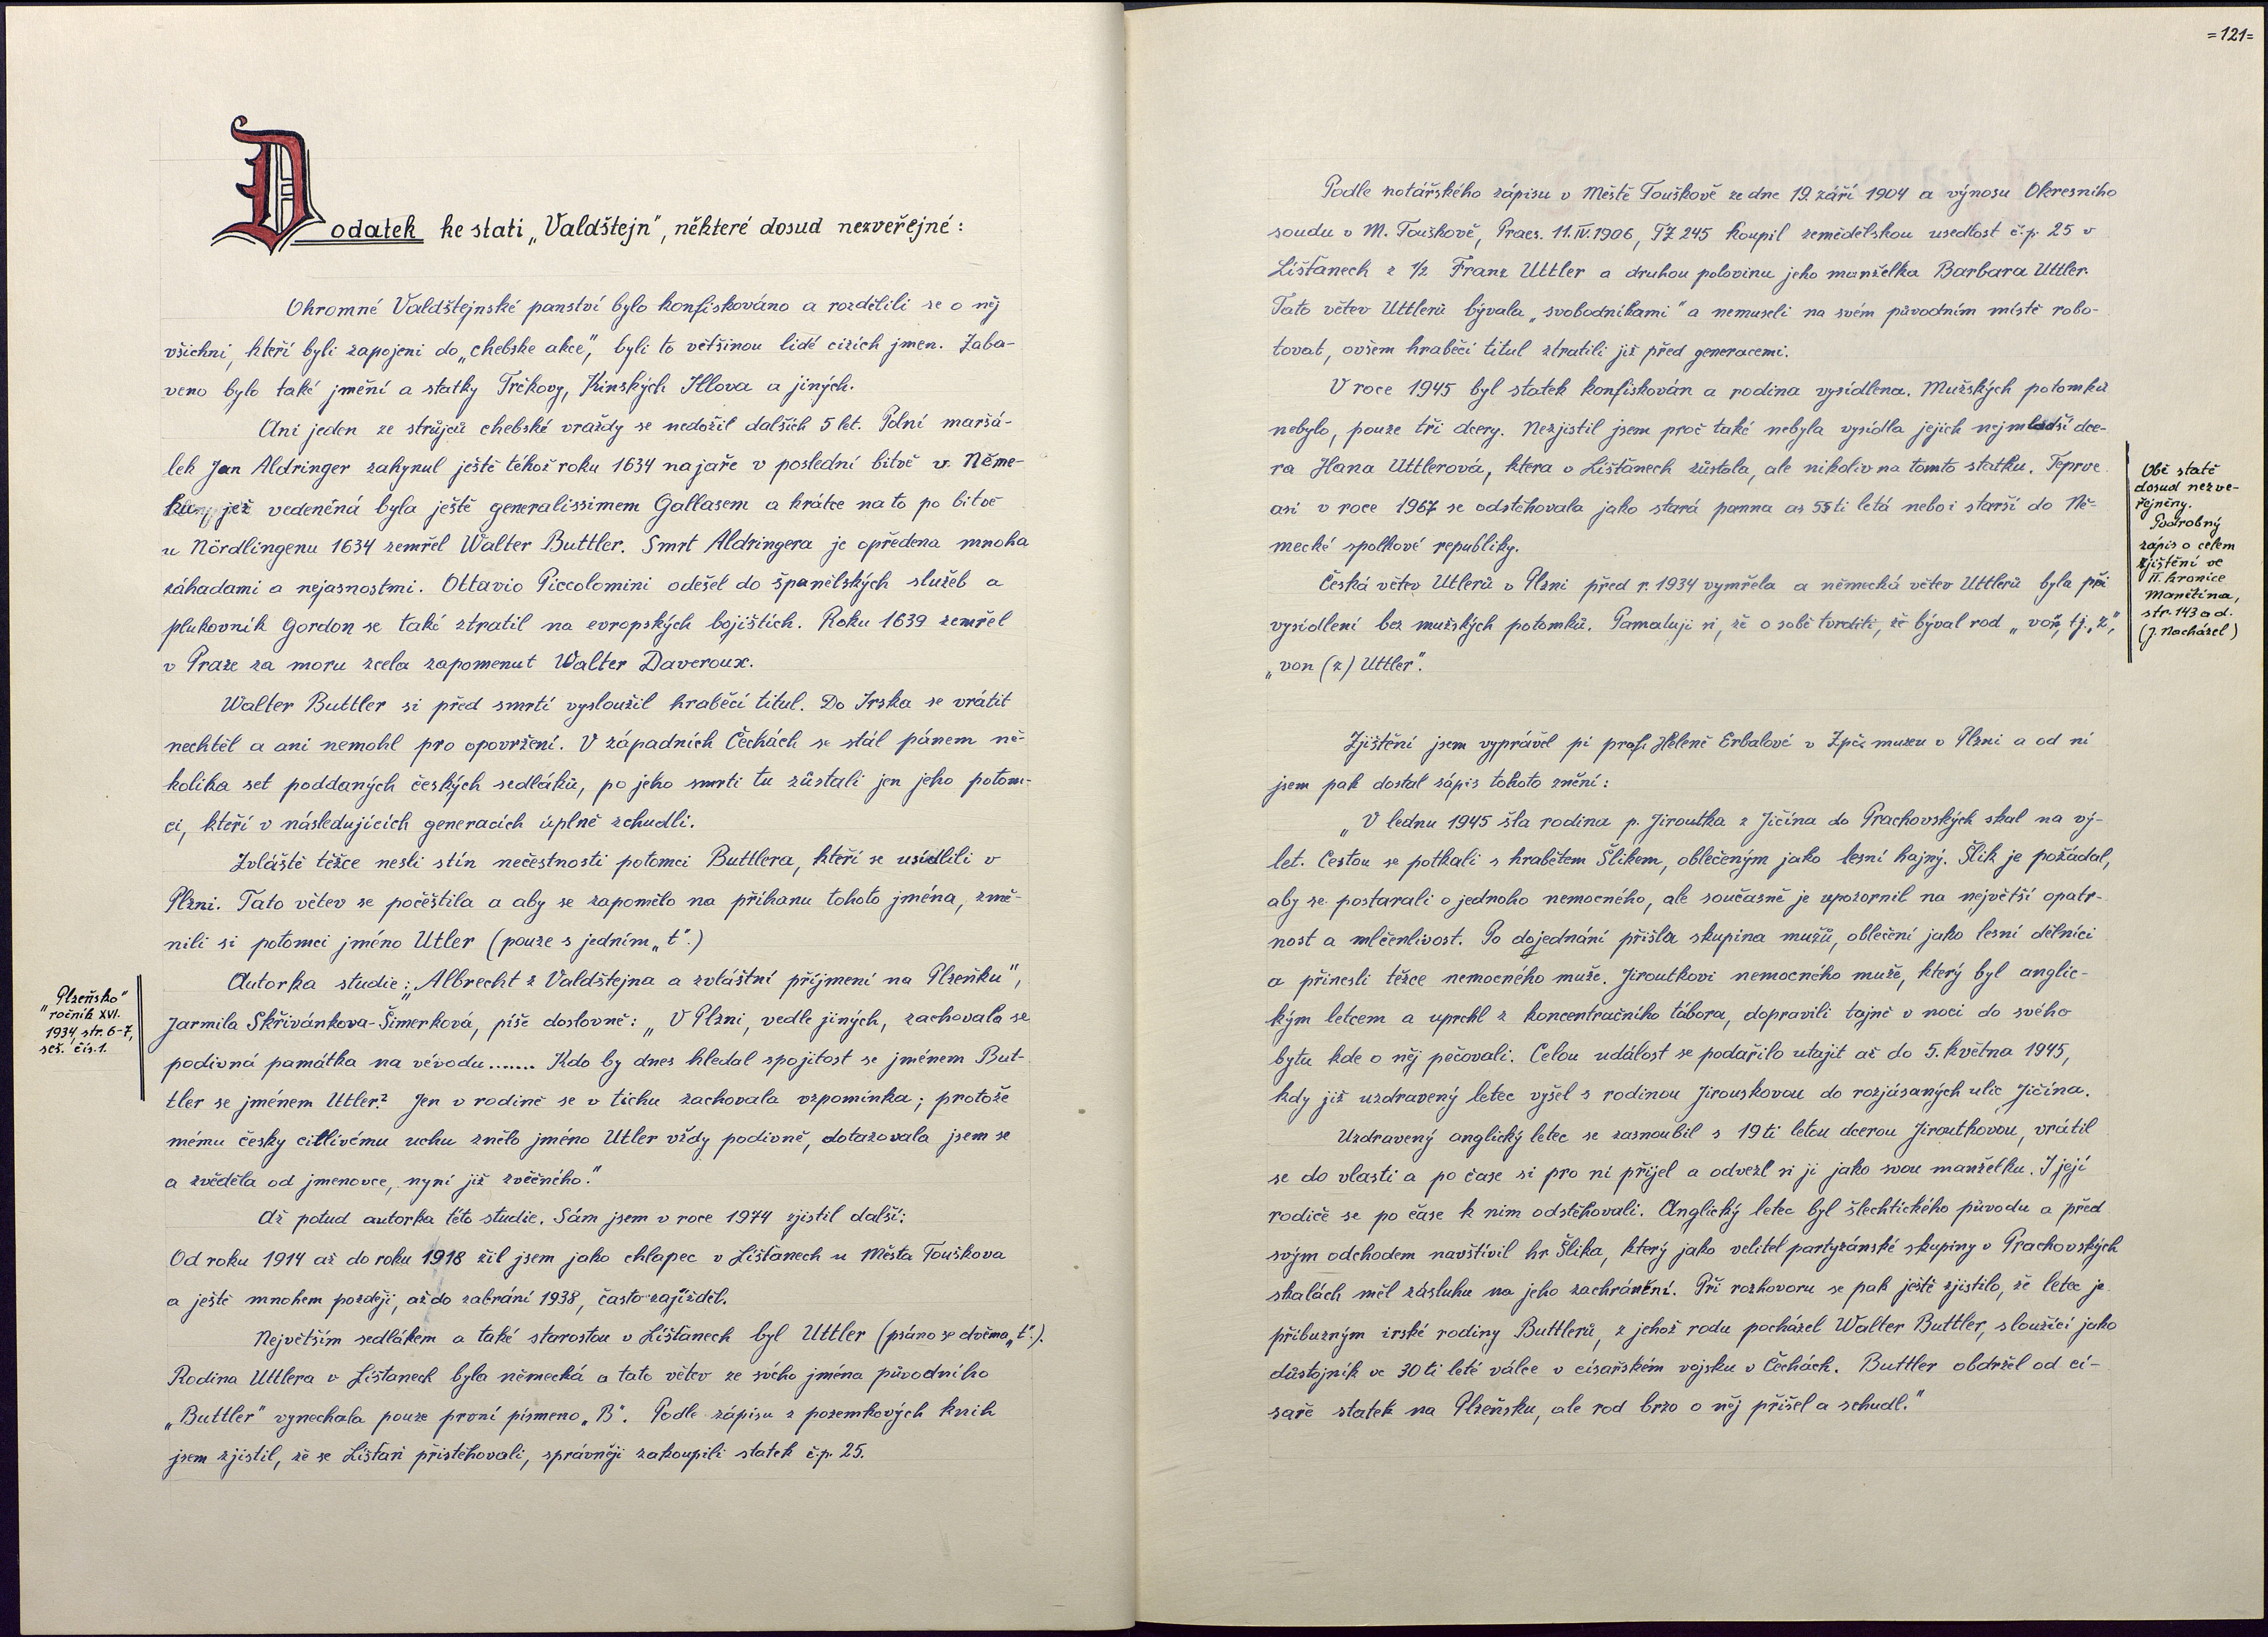 Dodatek ke stati „Valdštejn", některé dosud nezveřejné:
Ohromné Valdštejnské panství bylo konfiskováno a rozdělili se o něj
všichni, kteří byli zapojeni do „chebske akce", byli to většinou lidé cizích jmen. Zaba-
veno bylo také jmění a statky Trčkovy, Kinských Illova a jiných.
Ani jeden ze strůjců chebské vraždy se nedožil dalších 5 let. Polní maršá-
lek Jan Aldringer zahynul ještě téhož roku 1634 na jaře v poslední bitvě v Něme-
cku, jež vedeněná byla ještě generalissimem Gallasem a krátce na to po bitvě
u Nördlingenu 1634 zemřel Walter Buttler. Smrt Aldringera je opředena mnoha
záhadami a nejasnostmi. Ottavio Piccolomini odešel do španělských služeb a
plukovník Gordon se také ztratil na evropských bojištích. Roku 1639 zemřel
v Praze za moru zcela zapomenut Walter Daveroux.
Walter Buttler si před smrtí vysloužil hraběcí titul. Do Irska se vrátit
nechtěl a ani nemohl pro opovržení. V západních Čechách se stál pánem ně-
kolika set poddaných českých sedláků, po jeho smrti tu zůstali jen jeho potom-
ci, kteří v následujících generacích úplně zchudli.
Zvláště těžce nesli stín nečestnosti potomci Buttlera, kteří se usídlili v
Plzni. Tato větev se počeštila a aby se zapomělo na příhanu tohoto jména, změ-
nili si potomci jméno Utler (pouze s jedním „t".)
Autorka studie: „Albrecht z Valdštejna a zvláštní příjmení na Plzeňku",
Jarmila Skřivánkova-Šimerková, píše doslovně: „V Plzni, vedle jiných, zachovala se
podivná památka na vévodu....... Kdo by dnes hledal spojitost se jménem But-
tler se jménem Utler? Jen v rodině se v tichu zachovala vzpomínka; protože
mému česky citlivému uchu znělo jméno Utler vždy podivně, dotazovala jsem se
a zvěděla od jmenovce, nyní již zvěčného."
Až potud autorka této studie. Sám jsem v roce 1974 zjistil další:
Od roku 1914 až do roku 1918 žil jsem jako chlapec v Líšťanech u Města Touškova
a ještě mnohem později, až do zabrání 1938, často zajížděl.
Největším sedlákem a také starostou v Líšťanech byl Uttler (psáno se dvěma „t".).
Rodina Uttlera v Líšťanech byla německá a tato větev ze svého jména původního
„Buttler" vynechala pouze první písmeno „B". Podle zápisu z pozemkových knih
jsem zjistil, že se Líšťan přistěhovali, správněji zakoupili statek č.p. 25.
„Plzeňsko"
ročník XVI.
1934, str. 6-7,
seš. čís. 1.
=121=
Podle notářského zápisu v Městě Touškově ze dne 19. září 1904 a výnosu Okresního
soudu v M. Touškově, Praes. 11. IV. 1906, TZ 245 koupil zemědělskou usedlost č.p. 25 v
Líšťanech z 1/2 Franz Uttler a druhou polovinu jeho manželka Barbara Uttler.
Tato větev Uttlerů bývala „svobodníkami" a nemuseli na svém původním místě robo-
tovat, ovšem hraběcí titul ztratili již před generacemi.
V roce 1945 byl statek konfiskován a rodina vysídlena. Mužských potomků
nebylo, pouze tři dcery. Nezjistil jsem proč také nebyla vysídla jejich nejmladší dce-
ra Hana Uttlerová, ktera v Líšťanech zůstala, ale nikoliv na tomto statku. Teprve
asi v roce 1967 se odstěhovala jako stará panna as 55ti letá nebo i starší do Ně-
mecké spolkové republiky.
Česká větev Utlerů v Plzni před r. 1934 vymřela a německá větev Uttlerů byla při
vysídlení bez mužských potomků. Pamatuji si, že o sobě tvrdili, že býval rod „von, tj. „z",
„von (z) Uttler".
Zjištění jsem vyprávěl pí prof. Heleně Erbalové v Zpč. muzeu v Plzni a od ní
jsem pak dostal zápis tohoto znění:
„V lednu 1945 šla rodina p. Jiroutka z Jičína do Prachovských skal na vý-
let. Cestou se potkali s hrabětem Šlikem, oblečeným jako lesní hajný. Šlik je požádal,
aby se postarali o jednoho nemocného, ale současně je upozornil na největší opatr-
nost a mlčenlivost. Po dojednání přišla skupina mužů, oblečení jako lesní dělníci
a přinesli těžce nemocného muže. Jiroutkovi nemocného muže, který byl anglic-
kým letcem a uprchl z koncentračního tábora, dopravili tajně v noci do svého
bytu kde o něj pečovali. Celou událost se podařilo utajit až do 5. května 1945,
kdy již uzdravený letec vyšel s rodinou Jirouskovou do rozjásaných ulic Jičína.
Uzdravený anglický letec se zasnoubil s 19ti letou dcerou Jiroutkovou, vrátil
se do vlasti a po čase si pro ní přijel a odvezl si ji jako svou manželku. I její
rodiče se po čase k nim odstěhovali. Anglický letec byl šlechtického původu a před
svým odchodem navštívil hr. Šlika, který jako velitel partyzánské skupiny v Prachovských
skalách měl zásluhu na jeho zachránění. Při rozhovoru se pak ještě zjistilo, že letec je
příbuzným irské rodiny Buttlerů, z jehož rodu pocházel Walter Buttler, sloužící jako
důstojník ve 30ti leté válce v císařském vojsku v Čechách. Buttler obdržel od cí-
saře statek na Plzeňsku, ale rod brzo o něj přišel a schudl."
Obě statě
dosud nezve-
řejněny.
Podrobný
zápis o celem
zjištění ve
II. kronice
Manětína,
str. 143 a d.
(J. Nacházel)